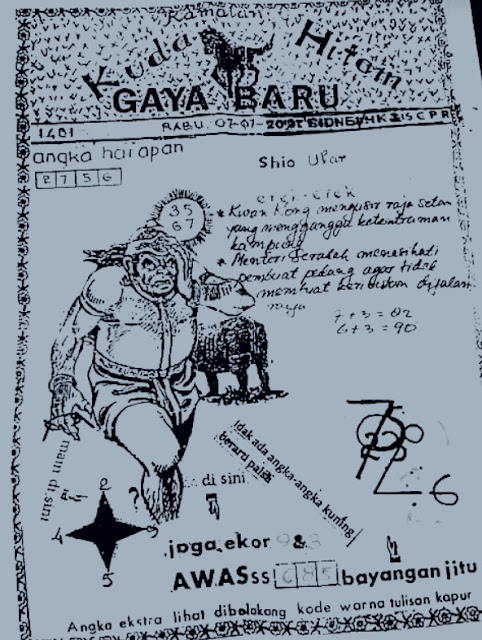 Ramalan
Kuda Hitam
GAYA BARU
1401
RABU. 07-07-2021 SIDNEY HK SGP
angka harapan
2 7 5 6
Shio Ular
erek-erek
35
67
* Kwan Kong mengusir raja setan
yang mengganggu ketentraman
kampung
* Menteri Serakah menasihati
pembuat pedang agar tidak
membuat keributan dijalan
raya
7+3=82
6+3=90
main di sini
?
di sini
tdak ada angka-angka kuning
berarti palsu
6
2
4
5
jaga ekor 9&3
AWASss 685 bayangan jitu
Angka ekstra lihat dibelakang kode warna tulisan kapur